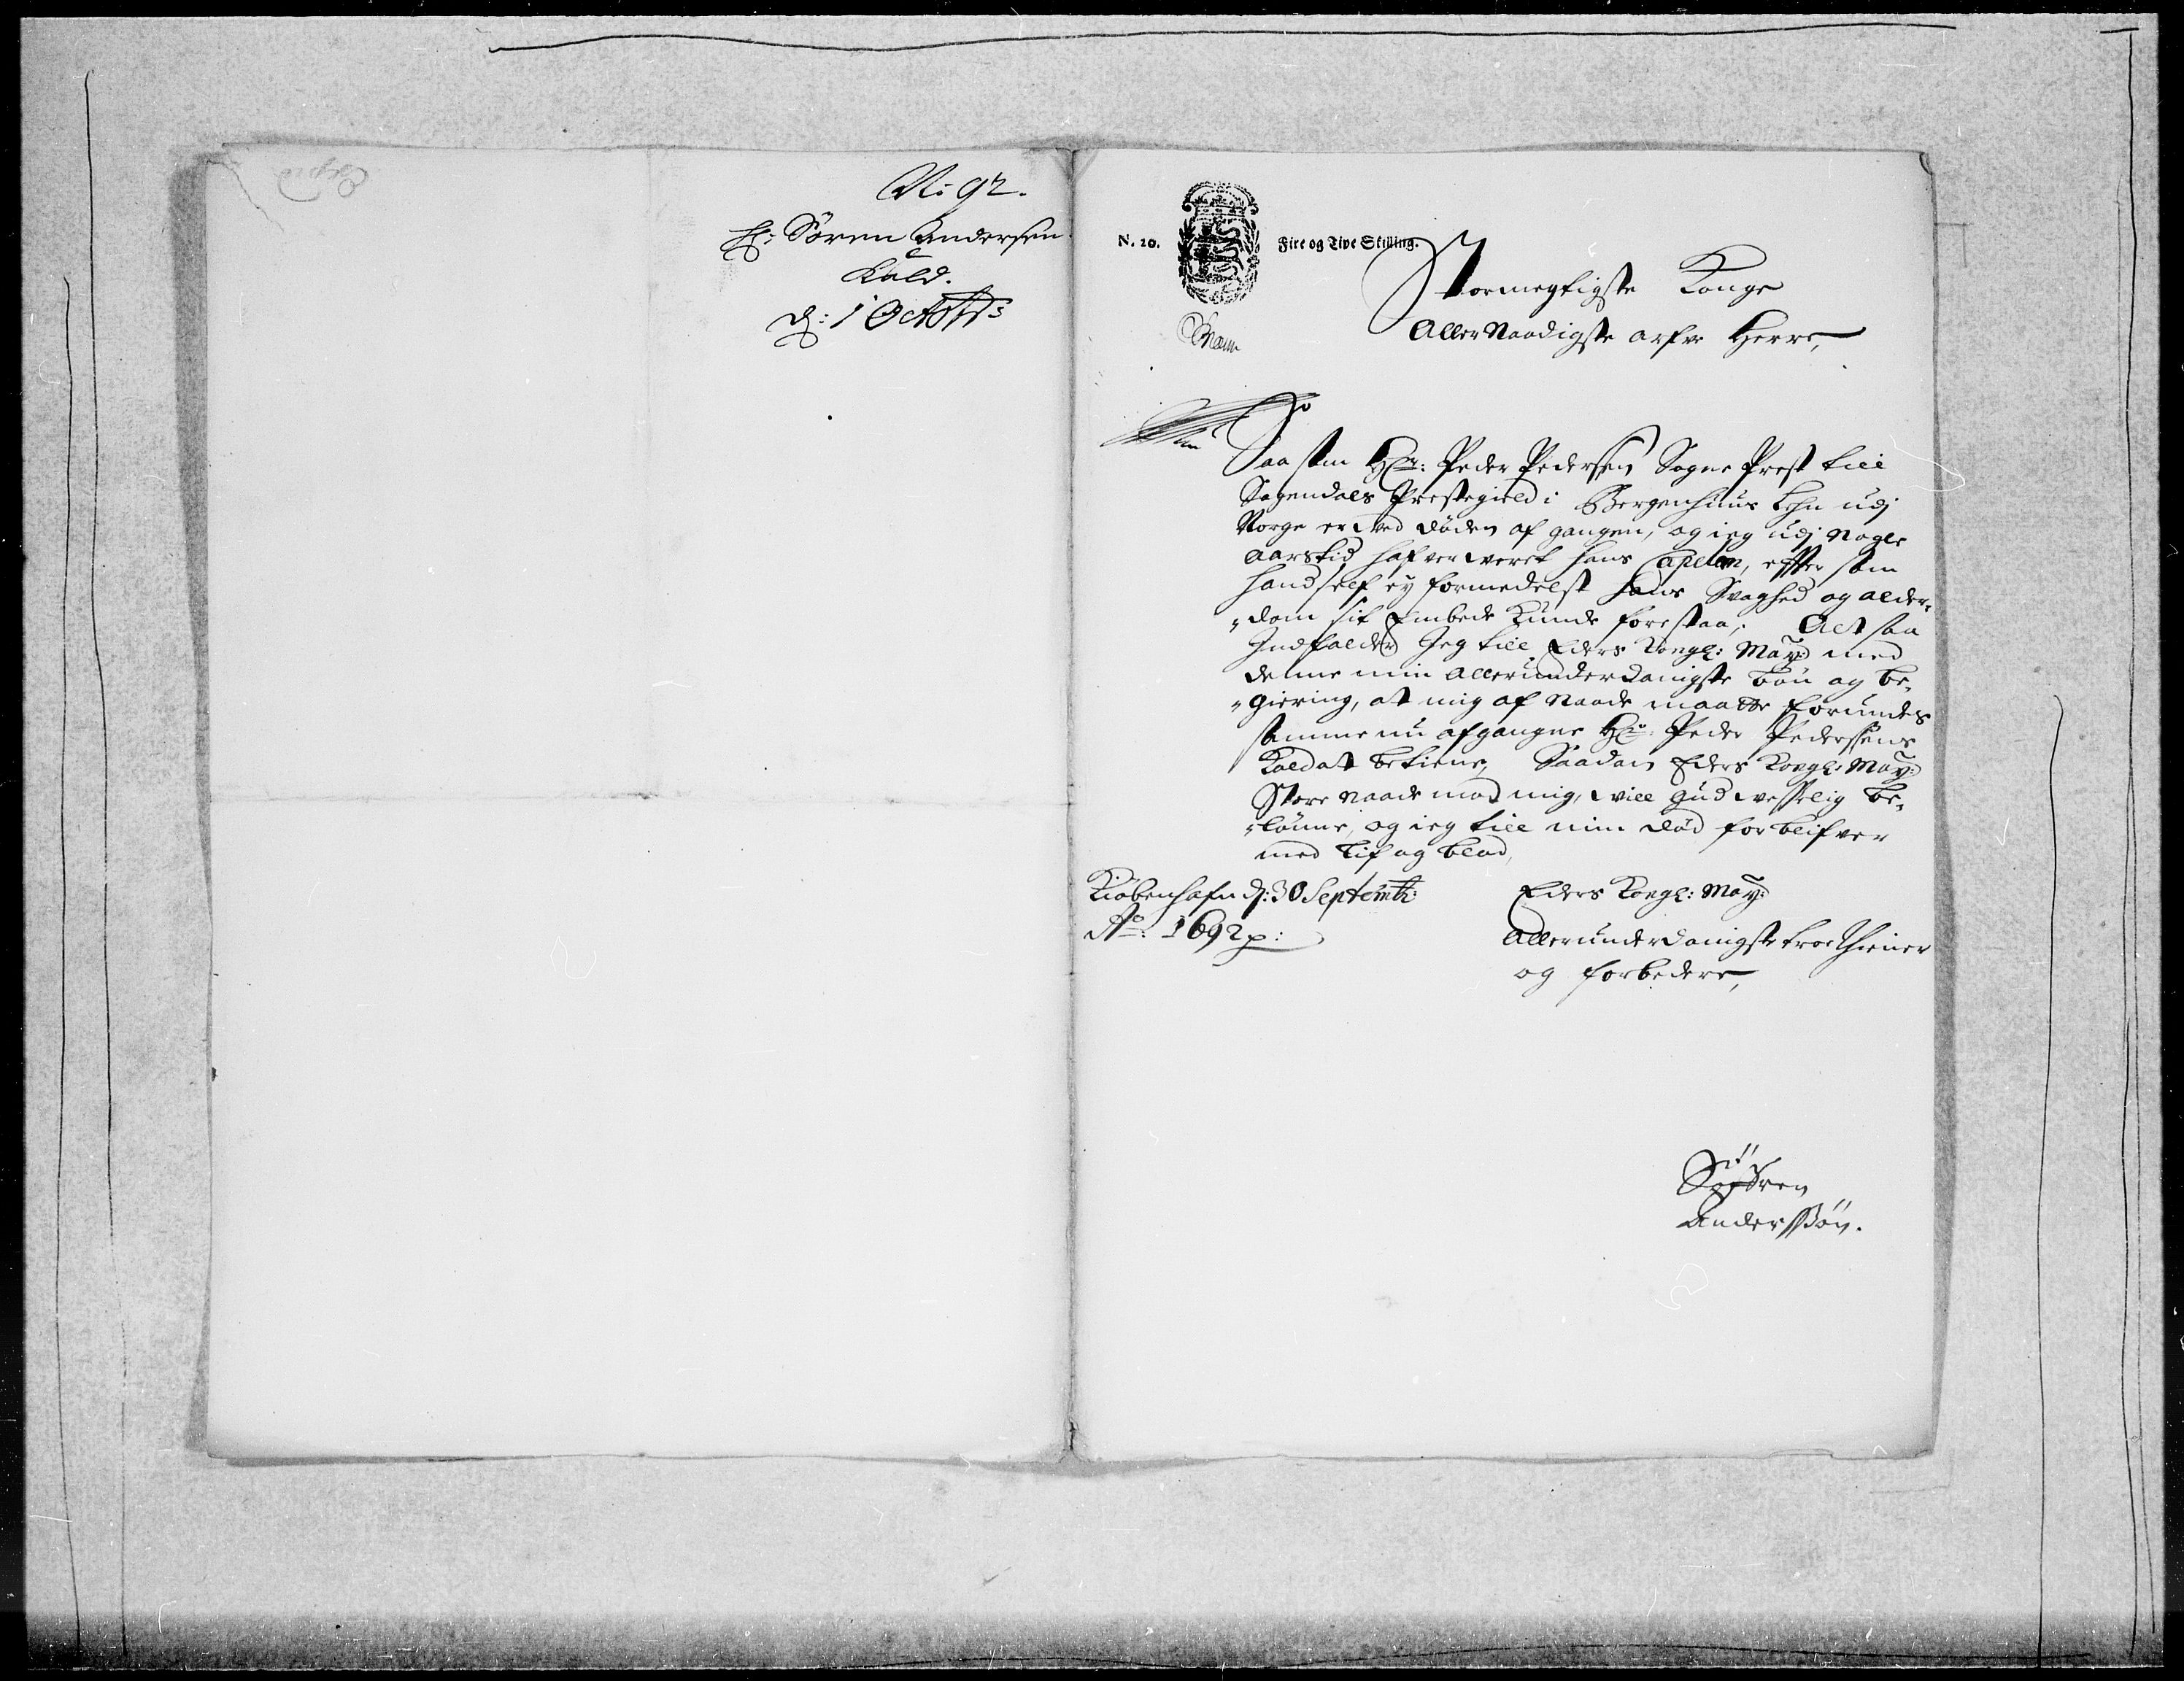 N: 92.
H: Sören Andersen
Kald.
d: 1 Octobr:
N. 20.
Fire og Tive Skilling.
Stormegtigste Konge
Aller Naadigste arfve Herre,
Saasom Hr: Peder Pedersen Sogne Prest till
Sogendals Prestegield i Bergenhuus Lehn udj
Norge er ved döden af gangen, og ieg udj nogle
aarstid hafver verit hans Capelan, efftersom
hand self ey formedelst hans Svaghed og alder-
-dom sit Embede kunde forestaa; Alt saa
Indfalder Jeg till Eders Kongl: May: med
denne min allerunderdanigste bön og be-
-giering, at mig af Naade maatte forundes
samme nu afgangne Hr: Peder Pedersens
Kald at betiene, Saadan Eders Kongl: May:
Store naade mod mig, vill Gud visselig be-
-lönne, og ieg till min död forblifver
med lif og blod,
Kiöbenhafn d: 30 Septemb:
Ao: 1692
Eders Kongl: May:
Allerunderdanigste troe thiener
og forbedere,
Sören
Anderssön.